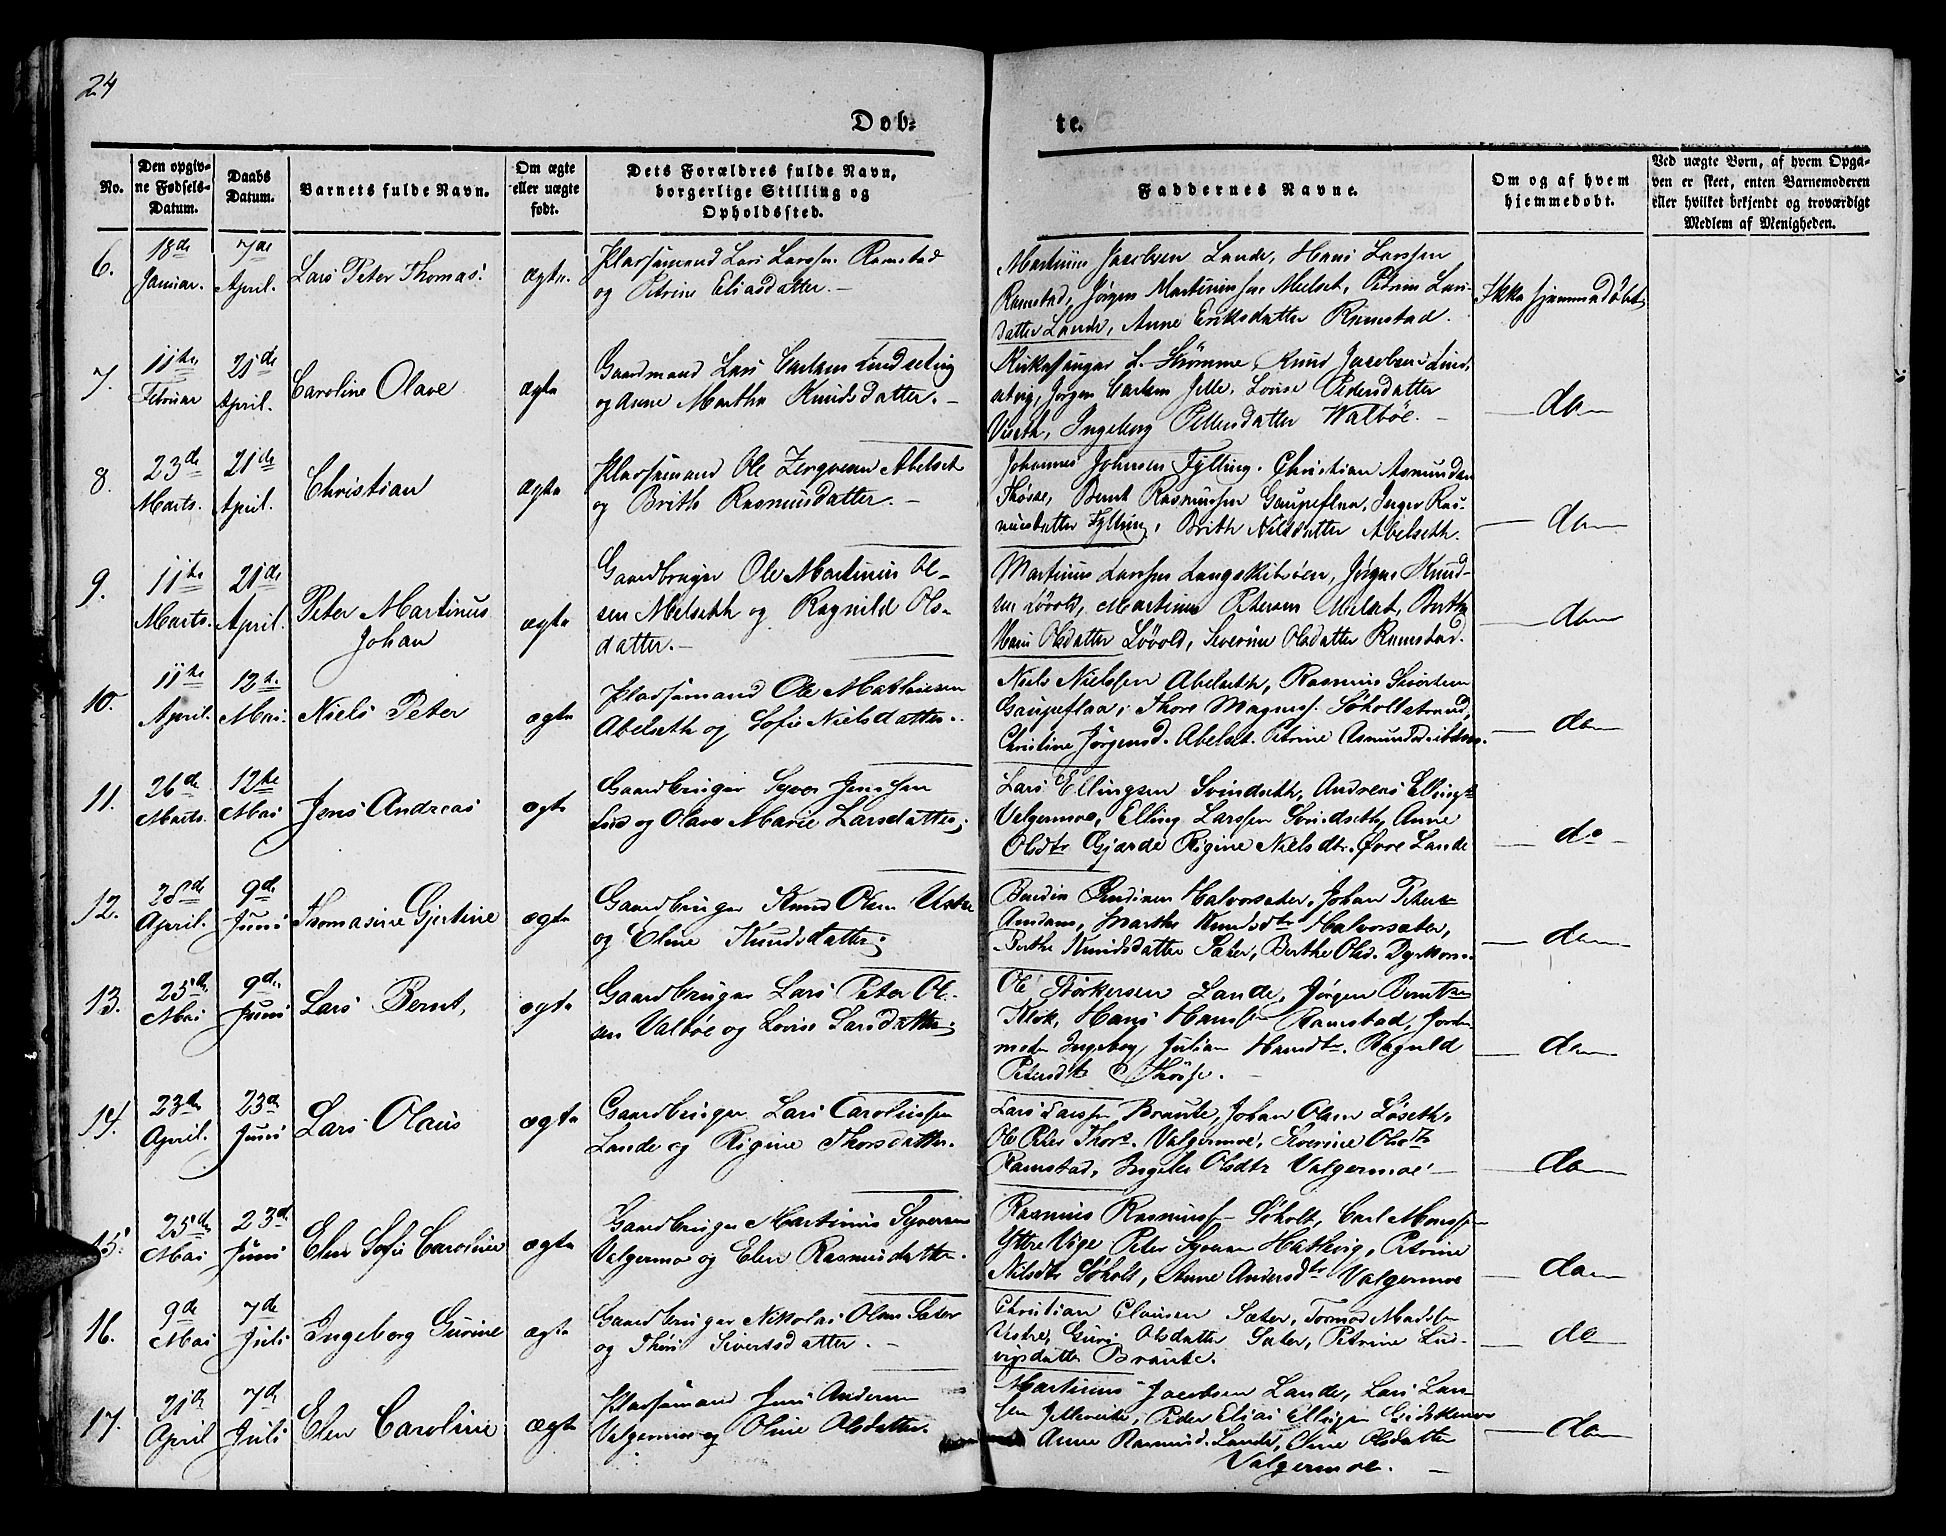 24
Døb-
te.
No.
Den opgiv-
ne Fødsels-
Datum.
Daabs
Datum.
Barnets fulde Navn.
Om ægte
eller uægte
født.
Dets Forældres fulde Navn,
borgerlige Stilling og
Opholdssted.
Faddernes Navne.
Om og af hvem
hjemmedøbt.
Ved uægte Børn, af hvem Opga-
ven er skeet, enten Barnemoderen
eller hvilket bekjendt og troværdigt
Medlem af Menigheden.
6.
18de
Januar.
7de
April.
Lars Peter Thomas.
ægte.
Pladsemand Lars Larssen Ramstad
og Petrine Eliasdatter. –
Martinus Jacobsen Lande, Hans Larssen
Ramstad, Jørgen Martinussen Melset, Petrine Lars-
datter Lande, Anne Eriksdatter Ramstad.
Ikke hjemmedøbt
7.
11te
Februar
21de
April.
Caroline Olave
ægte
Gaardmand Lars Carlsen Lindsetvig
og Anne Martha Knudsdatter. –
Kirkesanger L. Strømme, Knud Jacobsen Lind-
setvig, Jørgen Carlsen Jelle, Lovise Pedersdatter
Ingeborg Pettersdatter Walbøe. –
do
8.
23de
Marts.
21de
April.
Christian
ægte
Pladsemand Ole Abelset
og Brith Rasmusdatter. –
Johannes Johnsen Fylling, Christian Asmundsen
Bernt Rasmussen Gaupeflaa, Ras-
musdatter Fylling, Brith Nilsdatter Abelseth.
do
9.
11te
Marts.
21de
April.
Peter Martinus
Johan
ægte
Gaardbruger Ole Martinus Ol-
sen Melseth og Ragnild Ols-
datter. –
Martinus Larssen Langskibsøen, Jørgen Knud-
sen Løvold, Martinus Petersen Melset, Berthe
Marie Olsdatter Løvold, Severine Olsdatter Ramstad.
do
10.
11te
April.
12te
Mai.
Niels Peter
ægte
Pladsemand Ole Mathiesen
Abelseth og Sofie Nielsdatter.
Niels Nielssen Abelseth, Rasmus Sivertsen
Gaupeflaa, Thore Magness. Søholtstrand,
Christine Jørgensd. Abelset. Petrine Asmundsd. ibidem.
do
11.
26de
Marts.
12te
Mai
Jens Andreas
ægte
Gaardbruger Syver Jenssen
og Olave Marie Larsdatter;
Lars Ellingsen Svindseth, Andreas Ellings.
Valgermoe, Elling Larssen Svindseth, Anne
Olsdtr Gjærde Rigine Nielsdtr. Øvre Lande
do
12.
28de
April.
9de
Juni
Thomasine Gjertine
ægte
Gaardbruger Knud Olsen Vestre
og Eline Knudsdatter;
Halvorsæter, Johan Peters.
Amdam, Marthe Knudsdtr Halvorsæter,
Berthe Knudsdatter Sæter, Berthe Olsd. Dyrkorn.
do
13.
25de
Mai
9de
Juni
Lars Bernt,
ægte
Gaardbruger Lars Peter Ol-
sen Valbøe og Lovise Larsdatter;
Ole Størkersen Lande, Jørgen Berntsen
Klok, Hans Hanssen Ramstad, Jorde-
moder Ingeborg Juliane Hansdtr. Ragnild
Petersdtr Thøsse. –
do
14.
23de
April.
23de
Juni
Lars Olaus
ægte
Gaardbruger Lars Carolussen
Lande og Rigine Thorsdatter.
Lars Larssen Braute, Johan Olsen Løseth,
Ole Peter Thors. Valgermoe, Severine Olsdtr
Ramstad, Olsdtr Valgermoe –
do
15.
25de
Mai
23de
Juni
Elen Sofie Caroline
ægte
Gaardbruger Martinus Syversen
Valgermoe og Elen Rasmusdatter.
Rasmus Rasmuss. Søholt, Carl Monssen
Yttre Vige Peter Syversen Hatlevig, Petrine
Nilsdtr Søholt, Anne Andersdtr Valgermoe
do
16.
9de
Mai
7de
Juli
Ingeborg Gurine
ægte
Gaardbruger Nikolai Olsen Sæter
og Theri Sivertsdatter. –
Christian Clausen Sæter, Tormod Madssen
Vestre, Guri Olsdatter Sæter, Petrine Lud-
vigsdatter Braute.
do
17.
21de
April
7de
Juli
Elen Caroline
ægte
Pladsemand Jens Andersen
Valgermoe og Oline Olsdatter.
Martinus Jacobsen Lande, Lars Lars-
sen Peder Elias Ellingsen
Anne Rasmusd. Lande, Olsdatter
Valgermoe. –
do